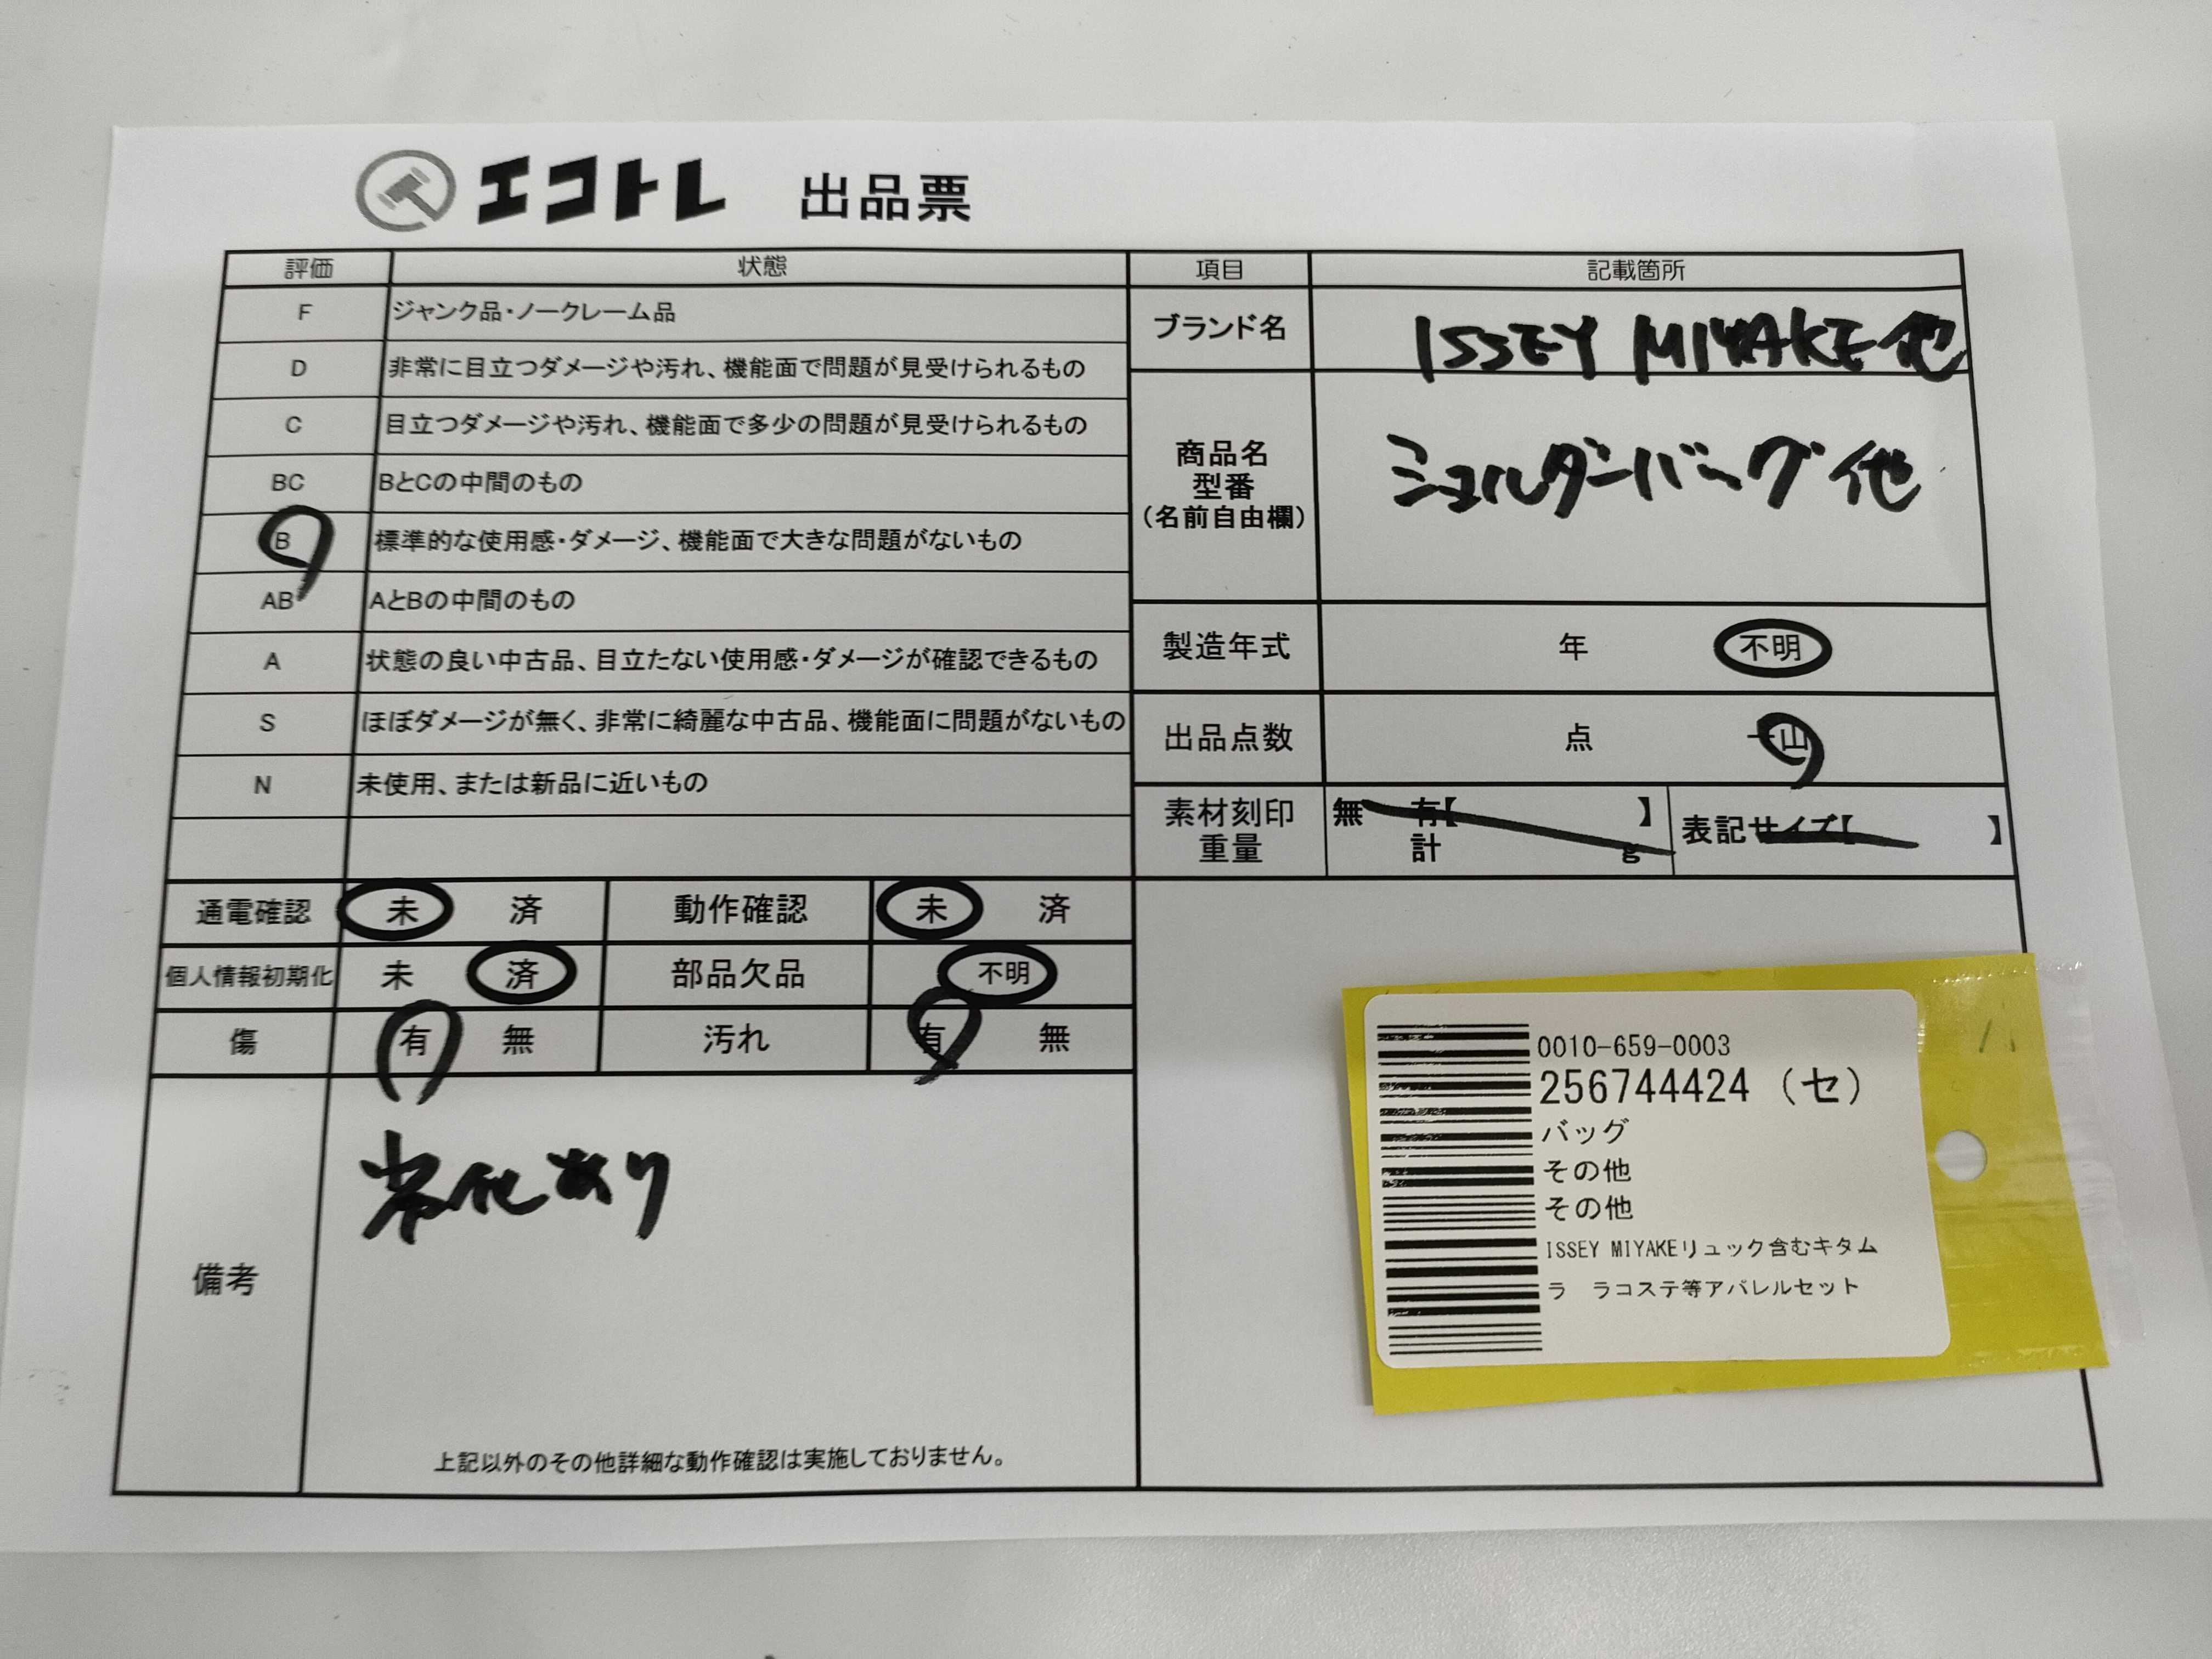 エコトレ 出品票
評価 状態 項目 記載箇所
F ジャンク品・ノークレーム品
D 非常に目立つダメージや汚れ、機能面で問題が見受けられるもの
C 目立つダメージや汚れ、機能面で多少の問題が見受けられるもの
BC BとCの中間のもの
B 標準的な使用感・ダメージ、機能面で大きな問題がないもの
AB AとBの中間のもの
A 状態の良い中古品、目立たない使用感・ダメージが確認できるもの
S ほぼダメージが無く、非常に綺麗な中古品、機能面に問題がないもの
N 未使用、または新品に近いもの
ブランド名 ISSEY MIYAKE他
商品名
型番
(名前自由欄)
ショルダーバッグ 他
製造年式 年 不明
出品点数 点 一山
素材刻印
重量
無 有【 】
計 g
表記サイズ【 】
通電確認 未 済 動作確認 未 済
個人情報初期化 未 済 部品欠品 不明
傷 有 無 汚れ 有 無
備考
劣化あり
上記以外のその他詳細な動作確認は実施しておりません。
0010-659-0003
256744424 (セ)
バッグ
その他
その他
ISSEY MIYAKEリュック含むキタム
ラ ラコステ等アパレルセット